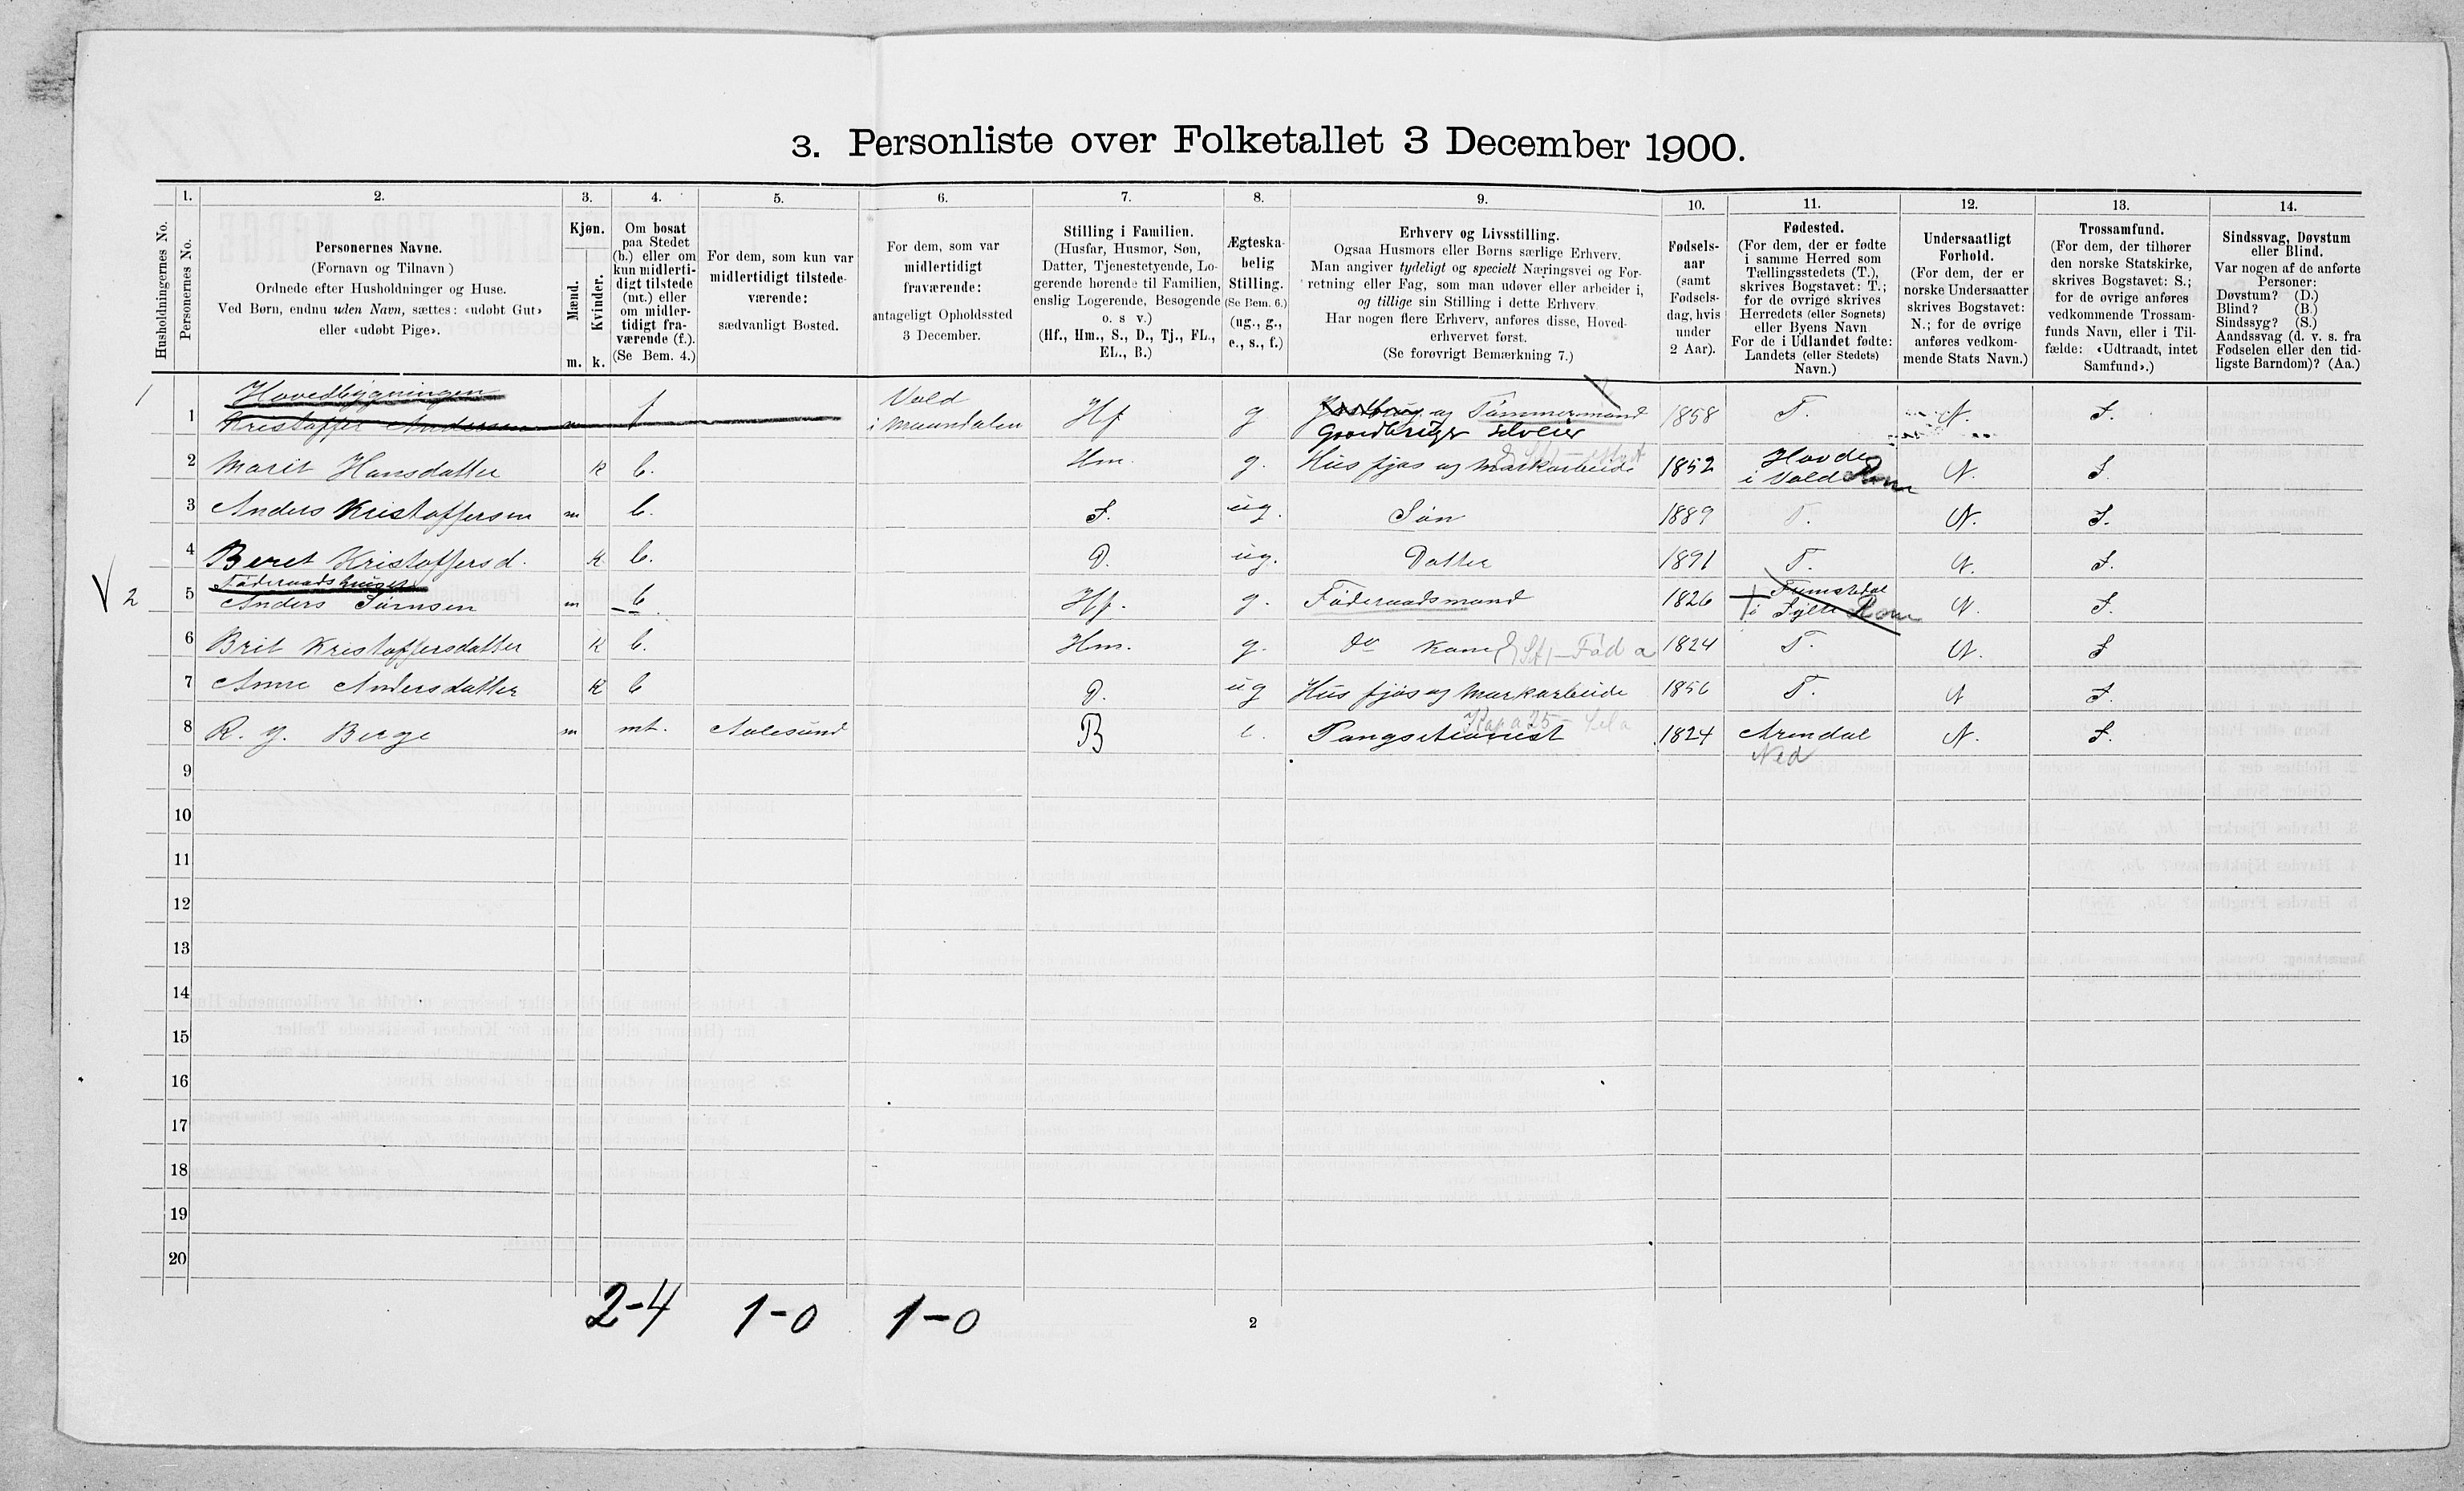 3. Personliste over Folketallet 3 December 1900.
Husholdningernes No.
1.
Personernes No.
2.
Personernes Navne.
(Fornavn og Tilnavn)
Ordnede efter Husholdninger og Huse.
Ved Børn, endnu uden Navn, sættes: «udøbt Gut»
eller «udøbt Pige».
3.
Kjøn.
Mænd.
Kvinder.
m. k.
4.
Om bosat
paa Stedet
(b.) eller om
kun midlerti-
digt tilstede
(mt.) eller
om midler-
tidigt fra-
værende (f.).
(Se Bem. 4.)
5.
For dem, som kun var
midlertidigt tilstede-
værende:
sædvanligt Bosted.
6.
For dem, som var
midlertidigt
fraværende:
antageligt Opholdssted
3 December.
7.
Stilling i Familien.
(Husfar, Husmor, Søn,
Datter, Tjenestetyende, Lo-
gerende hørende til Familien,
enslig Logerende, Besøgende
o. s v.)
(Hf., Hm., S., D., Tj., FL.,
EL., B.)
8.
Ægteska-
belig
Stilling.
(Se Bem. 6.)
(ug., g.,
e., s., f.)
9.
Erhverv og Livsstilling.
Ogsaa Husmors eller Børns særlige Erhverv.
Man angiver tydeligt og specielt Næringsvei og For-
retning eller Fag, som man udøver eller arbeider i,
og tillige sin Stilling i dette Erhverv
Har nogen flere Erhverv, anføres disse, Hoved-
erhvervet først.
(Se forøvrigt Bemærkning 7.)
10.
Fødsels-
aar
(samt
Fødsels-
dag, hvis
under
2 Aar).
11.
Fødested.
(For dem, der er fødte
i samme Herred som
Tællingsstedets (T.),
skrives Bogstavet: T.;
for de øvrige skrives
Herredets (eller Sognets)
eller Byens Navn
For de i Udlandet fødte:
Landets (eller Stedets)
Navn.)
12.
Undersaatligt
Forhold.
(For dem, der er
norske Undersaatter
skrives Bogstavet:
N.; for de øvrige
anføres vedkom-
mende Stats Navn.)
13.
Trossamfund.
(For dem, der tilhører
den norske Statskirke,
skrives Bogstavet: S.;
for de øvrige anføres
vedkommende Trossam-
funds Navn, eller i Til-
fælde: «Udtraadt, intet
Samfund».)
14.
Sindssvag, Døvstum
eller Blind.
Var nogen af de anførte
Personer:
Døvstum? (D.)
Blind? (B.)
Sindssyg? (S.)
Aandssvag (d. v. s. fra
Fødselen eller den tid-
ligste Barndom)? (Aa.)
Hovedbygningen
1 1 Kristoffer Andersen m f Vold i Maandalen Hf g og Tømmermand 1858 T. N. S.
Gaardbruger Selveier
2 Marit Hansdatter k b. Hm. g. Hus fjøs og Markarbeide 1852 Hovde i Vold Rom N. S.
3 Anders Kristoffersen m b. S. ug. Søn 1889 T. N. S.
4 Beret Kristoffersd. k b. D. ug. Datter 1891 T. N. S.
Føderaadshuset
V 2 5 Anders Sørnsen m b Hf. g. Føderaadsmand 1826 i Sylte Rom N. S.
6 Brit Kristoffersdatter k b. Hm. g. do Kone Fød a 1824 T. N. S
7 Anne Andersdatter k b D. ug Hus fjøs og Markarbeide 1856 T. N S.
8 R. G. Berge m mt. Aalesund B e. 1824 Arendal N. S.
Ned
9
10
11
12
13
14
15
16
17
18
19
20
2-4 1-0 1-0
2